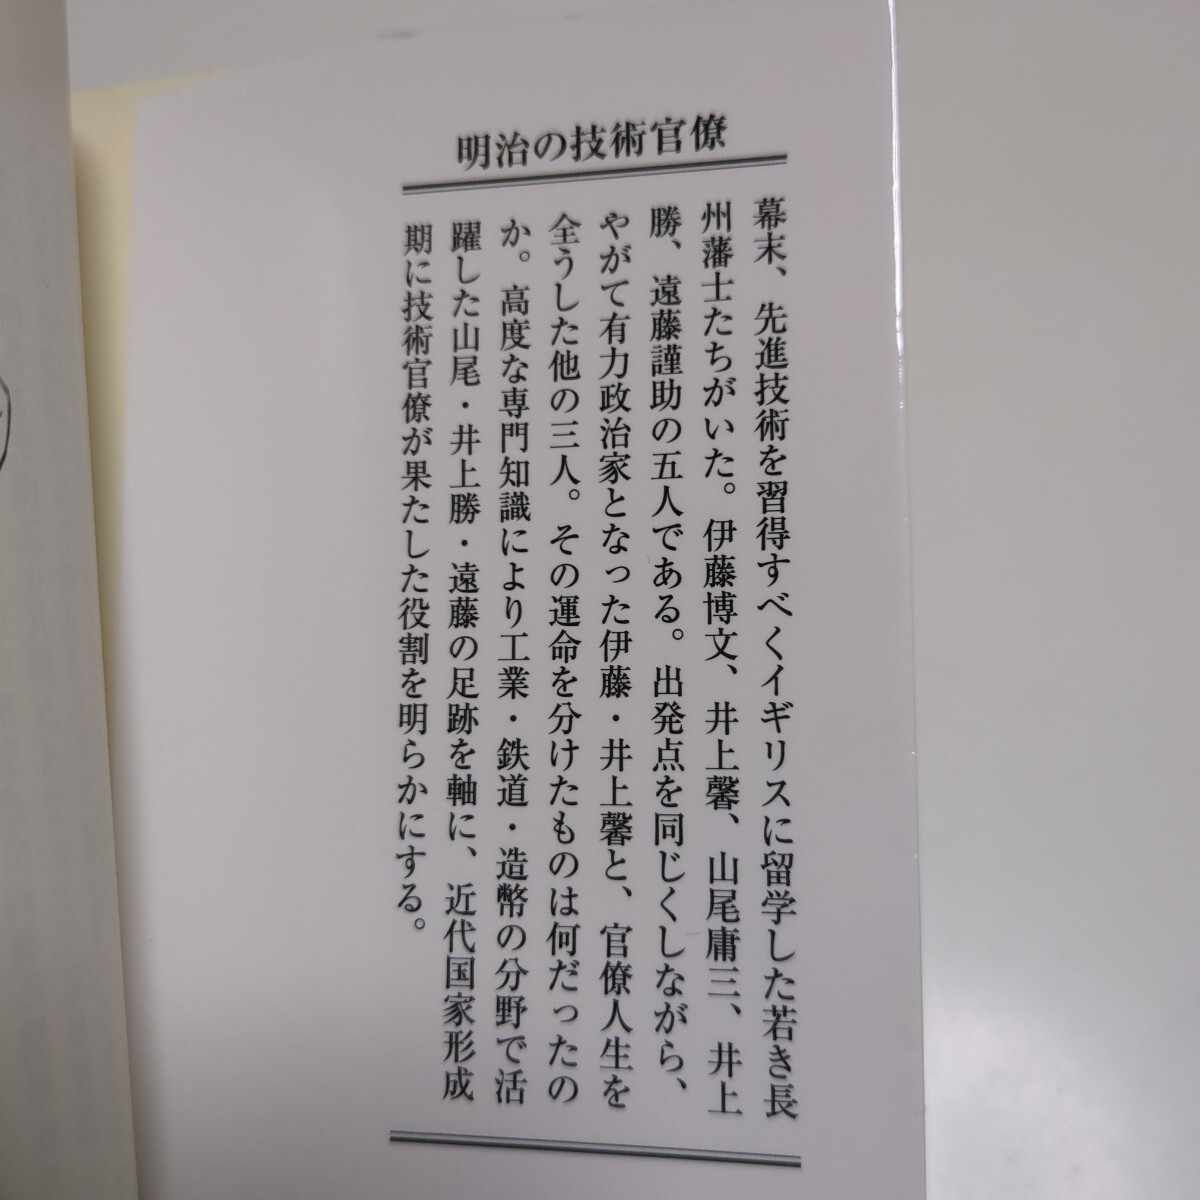 明治の技術官僚
幕末、先進技術を習得すべくイギリスに留学した若き長
州藩士たちがいた。伊藤博文、井上馨、山尾庸三、井上
勝、遠藤謹助の五人である。出発点を同じくしながら、
やがて有力政治家となった伊藤・井上馨と、官僚人生を
全うした他の三人。その運命を分けたものは何だったの
か。高度な専門知識により工業・鉄道・造幣の分野で活
躍した山尾・井上勝・遠藤の足跡を軸に、近代国家形成
期に技術官僚が果たした役割を明らかにする。